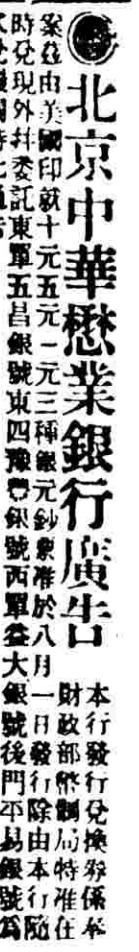 北京中華懋業銀行廣告
本行發行兌換券係奉
財政部幣制局特准在
案茲由美國印就十元五元一元三種銀元鈔票准於八月一日發行除由本行隨
時兌現外幷委託東單五昌銀號東四豫豐銀號西單益大銀號後門平易銀號爲